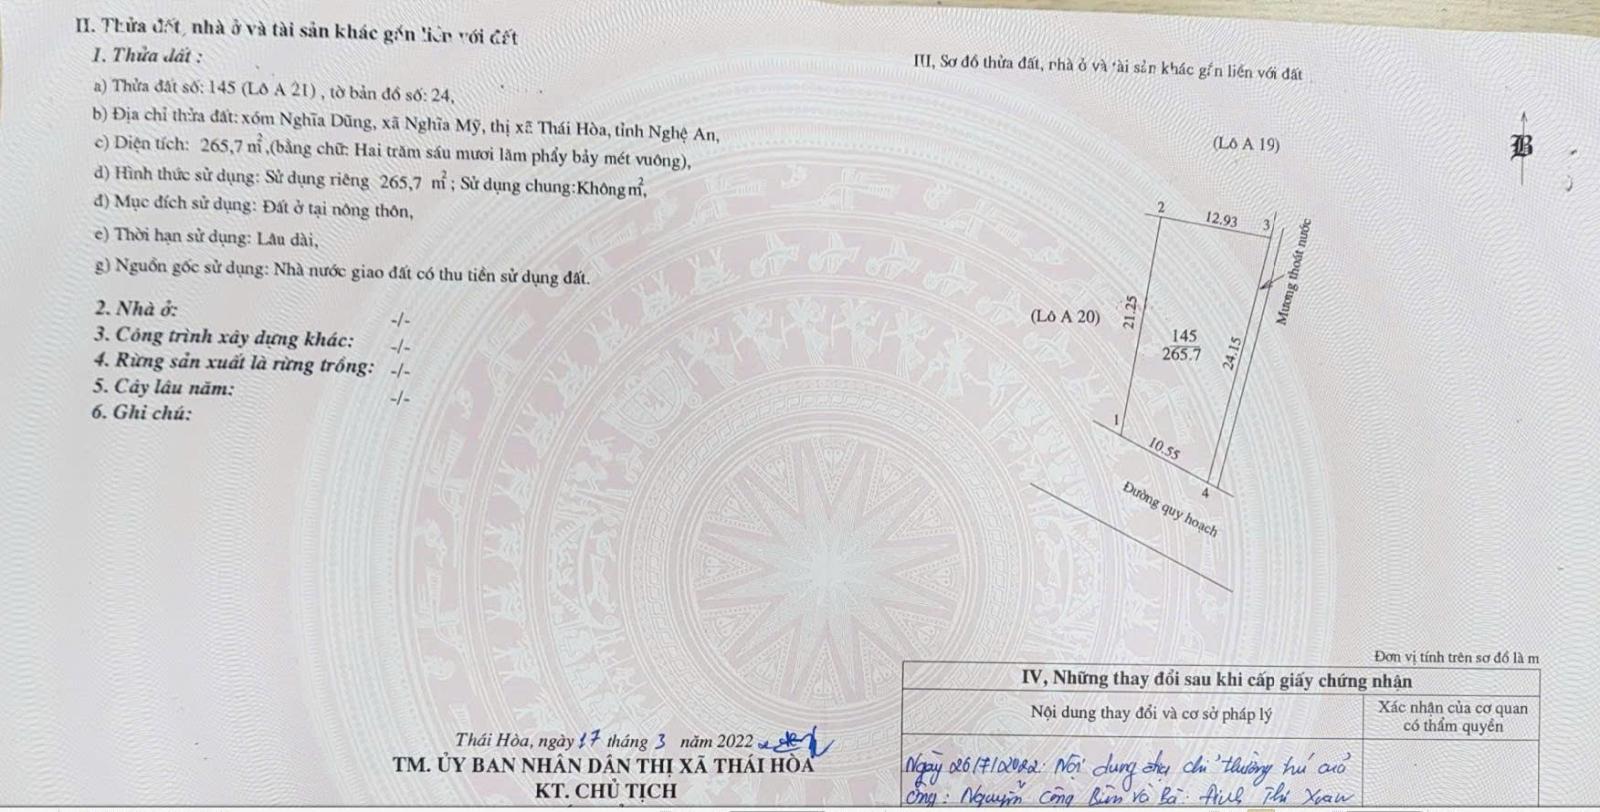 II. Thửa đất, nhà ở và tài sản khác gắn liền với đất
1. Thửa đất :
a) Thửa đất số: 145 (Lô A 21) , tờ bản đồ số: 24,
b) Địa chỉ thửa đất: xóm Nghĩa Dũng, xã Nghĩa Mỹ, thị xã Thái Hòa, tỉnh Nghệ An,
c) Diện tích: 265,7 m²,(bằng chữ: Hai trăm sáu mươi lăm phẩy bảy mét vuông),
d) Hình thức sử dụng: Sử dụng riêng 265,7 m² ; Sử dụng chung:Không m²,
đ) Mục đích sử dụng: Đất ở tại nông thôn,
e) Thời hạn sử dụng: Lâu dài,
g) Nguồn gốc sử dụng: Nhà nước giao đất có thu tiền sử dụng đất.
2. Nhà ở: -/-
3. Công trình xây dựng khác: -/-
4. Rừng sản xuất là rừng trồng: -/-
5. Cây lâu năm: -/-
6. Ghi chú:
Thái Hòa, ngày 17 tháng 3 năm 2022
TM. ỦY BAN NHÂN DÂN THỊ XÃ THÁI HÒA
KT. CHỦ TỊCH
III, Sơ đồ thửa đất, nhà ở và tài sản khác gắn liền với đất
(Lô A 19)
B
2
12.93
3
Mương thoát nước
(Lô A 20)
21.25
145
265.7
24.15
1
10.55
4
Đường quy hoạch
Đơn vị tính trên sơ đồ là m
IV, Những thay đổi sau khi cấp giấy chứng nhận
Nội dung thay đổi và cơ sở pháp lý
Xác nhận của cơ quan
có thẩm quyền
Ngày 26/7/2022: Nội dung địa chỉ thường trú của
Ông: Nguyễn Công Biên và Bà: Đinh Thị Xuân